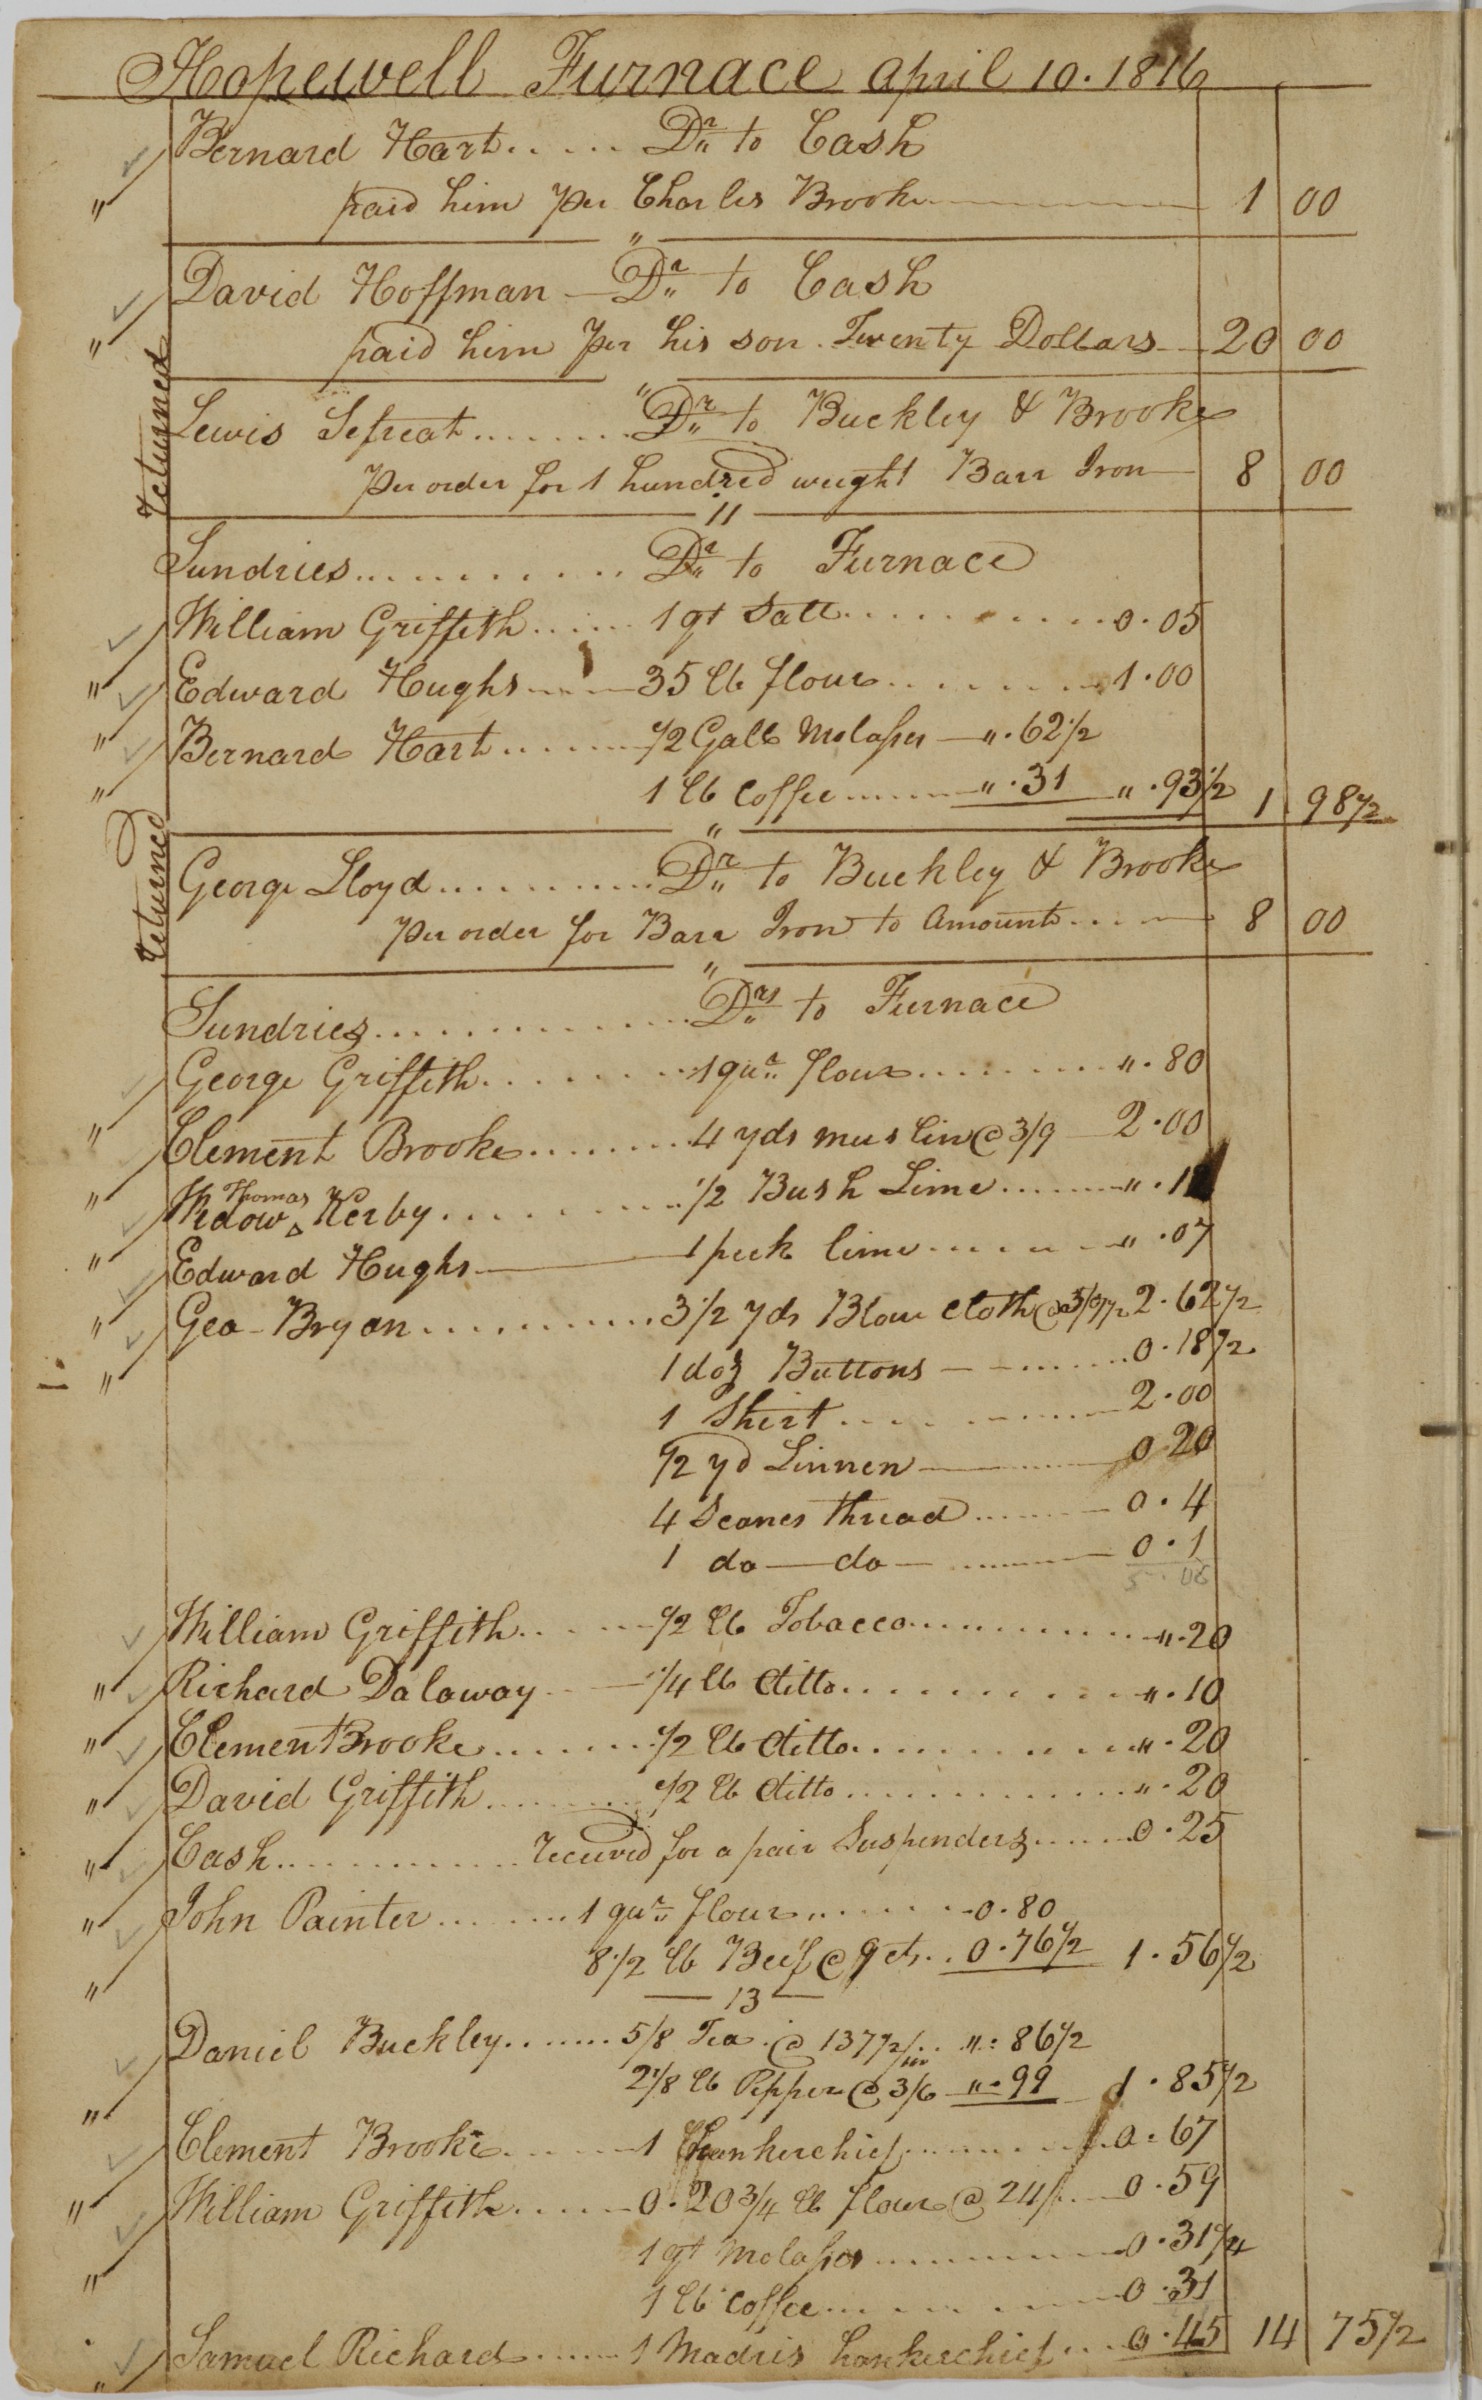 Hopewell Furnace April 10. 1816
Bernard Hart..... Dr to Cash
paid him per Charles Brooke 1 00
"
David Hoffman Dr to Cash
paid him per his son. Twenty Dollars 20 00
Returned
"
Lewis Sefreat........ Dr to Buckley & Brooke
Per order for 1 hundred weight Barr Iron 8 00
11
Sundries........... Dr to Furnace
William Griffith...... 1 qt Salt........... 0.05
Edward Hughs 35 lb flour......... 1.00
Bernard Hart....... 1/2 Gall Molasses ".62 1/2
1 lb Coffee ".31 ".93 1/2 1 98 1/2
Returned
"
George Lloyd.......... Dr to Buckley & Brooke
Per order for Barr Iron to Amount.... 8 00
"
Sundries............. Drs to Furnace
George Griffith........ 1 qur flour......... ".80
Clement Brooke....... 4 yds muslin @ 3/9 2.00
Thomas
Widow Kerby......... 1/2 Bush Lime ".1
Edward Hughs 1 peck lime...... ".07
Geo Bryan........... 3 1/2 yds Blow Cloth @ 2.62 1/2
1 doz Buttons 0.18 1/2
1 Shirt........ 2.00
1/2 yd Linnen 0.20
4 Scanes thread 0.4
1 do do 0.1
5.06
William Griffith...... 1/2 lb Tobacco........... ".20
Richard Dalaway 1/4 lb ditto.......... ".10
Clement Brooke....... 1/2 lb ditto.......... ".20
David Griffith 1/2 lb ditto............. ".20
Cash............ received for a pair Suspenders 0.25
John Painter....... 1 qur flour........ 0.80
8 1/2 lb Beef @ 9 cts.. 0.76 1/2 1.56 1/2
13
Daniel Buckley........ 5/8 Tea @ 137 1/2 ".86 1/2
2 1/8 lb Pepper @ 3/6 ".99 1.85 1/2
Clement Brooke....... 1 Hankerchief......... 0.67
William Griffith...... 0.20 3/4 lb flour @ 21/ 0.59
1 qt Molasses 0.31 1/4
1 lb Coffee 0.31
Samuel Richard 1 Madris hankerchief.. 0.45 14 75 1/2